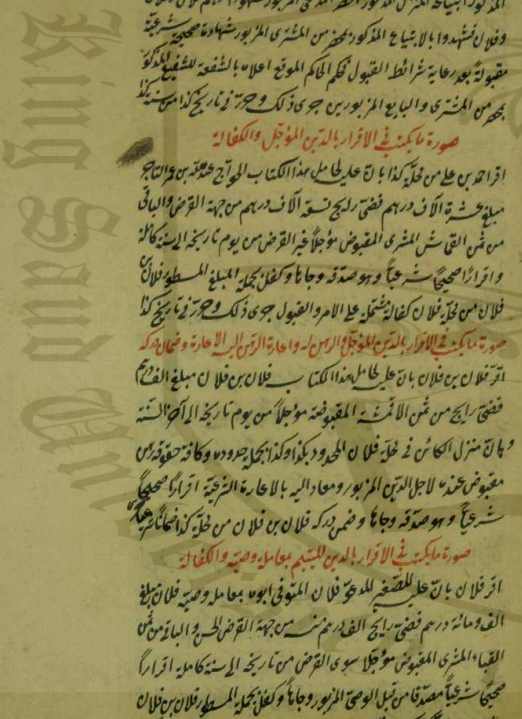 وفلان فشهدوا بالابتياع المذكور بمحضر من المشترى المزبور شهادة صحيحة شرعية
مقبولة بعد رعاية شرائط القبول فحكم الحاكم الموقع اعلاه بالشفعة للشفيع المذكور
بمحضر من المشترى والبايع المزبورين جرى ذلك وحرر فى تاريخ كذا من سنة كذا
صورة ما يكتب فى الاقرار بالدين المؤجل والكفالة
اقر احمد بن على من محلة كذا بان عليه لحامل هذا الكتاب الحواج بن التاجر
مبلغ عشرة آلاف درهم فضى رايج تسعة آلاف درهم من جهة القرض والباقى
من ثمن القماش المشترى المقبوض مؤجلا غير القرض من يوم تاريخه الى سنة كاملة
واقرارا صحيحا شرعيا وهو صدقه وجاها وكفل بجملة المبلغ المسطور فلان بن
فلان من محلة فلان كفالة مشتملة على الامر والقبول جرى ذلك وحرر فى تاريخ كذا
صورة ما يكتب فى الاقرار بالدين المؤجل والرهن له واعارة الرهن اليه الاعارة وضمان دركه
اقر فلان بن فلان بان عليه لحامل هذا الكتاب فلان بن فلان مبلغ الف درهم
فضى رايج من ثمن الاقمشة المقبوضة مؤجلا من يوم تاريخه الى آخر السنة
وبان منزله الكائن فى محلة فلان المحدود بكذا وكذا بجملة حدوده وكافة حقوقه رهن
مقبوض عنده لاجل الدين المزبور ومعاد اليه بالاعارة الشرعية اقرارا صحيحا
شرعيا وهو صدقه وجاها وضمن دركه فلان بن فلان من محلة كذا ضمانا شرعيا
صورة ما يكتب فى الاقرار بالدين لليتيم بمعاملة وصيه والكفالة
اقر فلان بان عليه للصغير المدعو فلان المتوفى ابوه بمعاملة وصيه فلان مبلغ
الف ومائة درهم فضى رايج الف درهم منه من جهة القرض الحسن والباقى من ثمن
القباء المشترى المقبوض مؤجلا سوى القرض من تاريخه الى سنة كاملة اقرارا
صحيحا شرعيا مصدقا من قبل الوصى المزبور وجاها وكفل بجملة المسطور فلان بن فلان
King Saud University